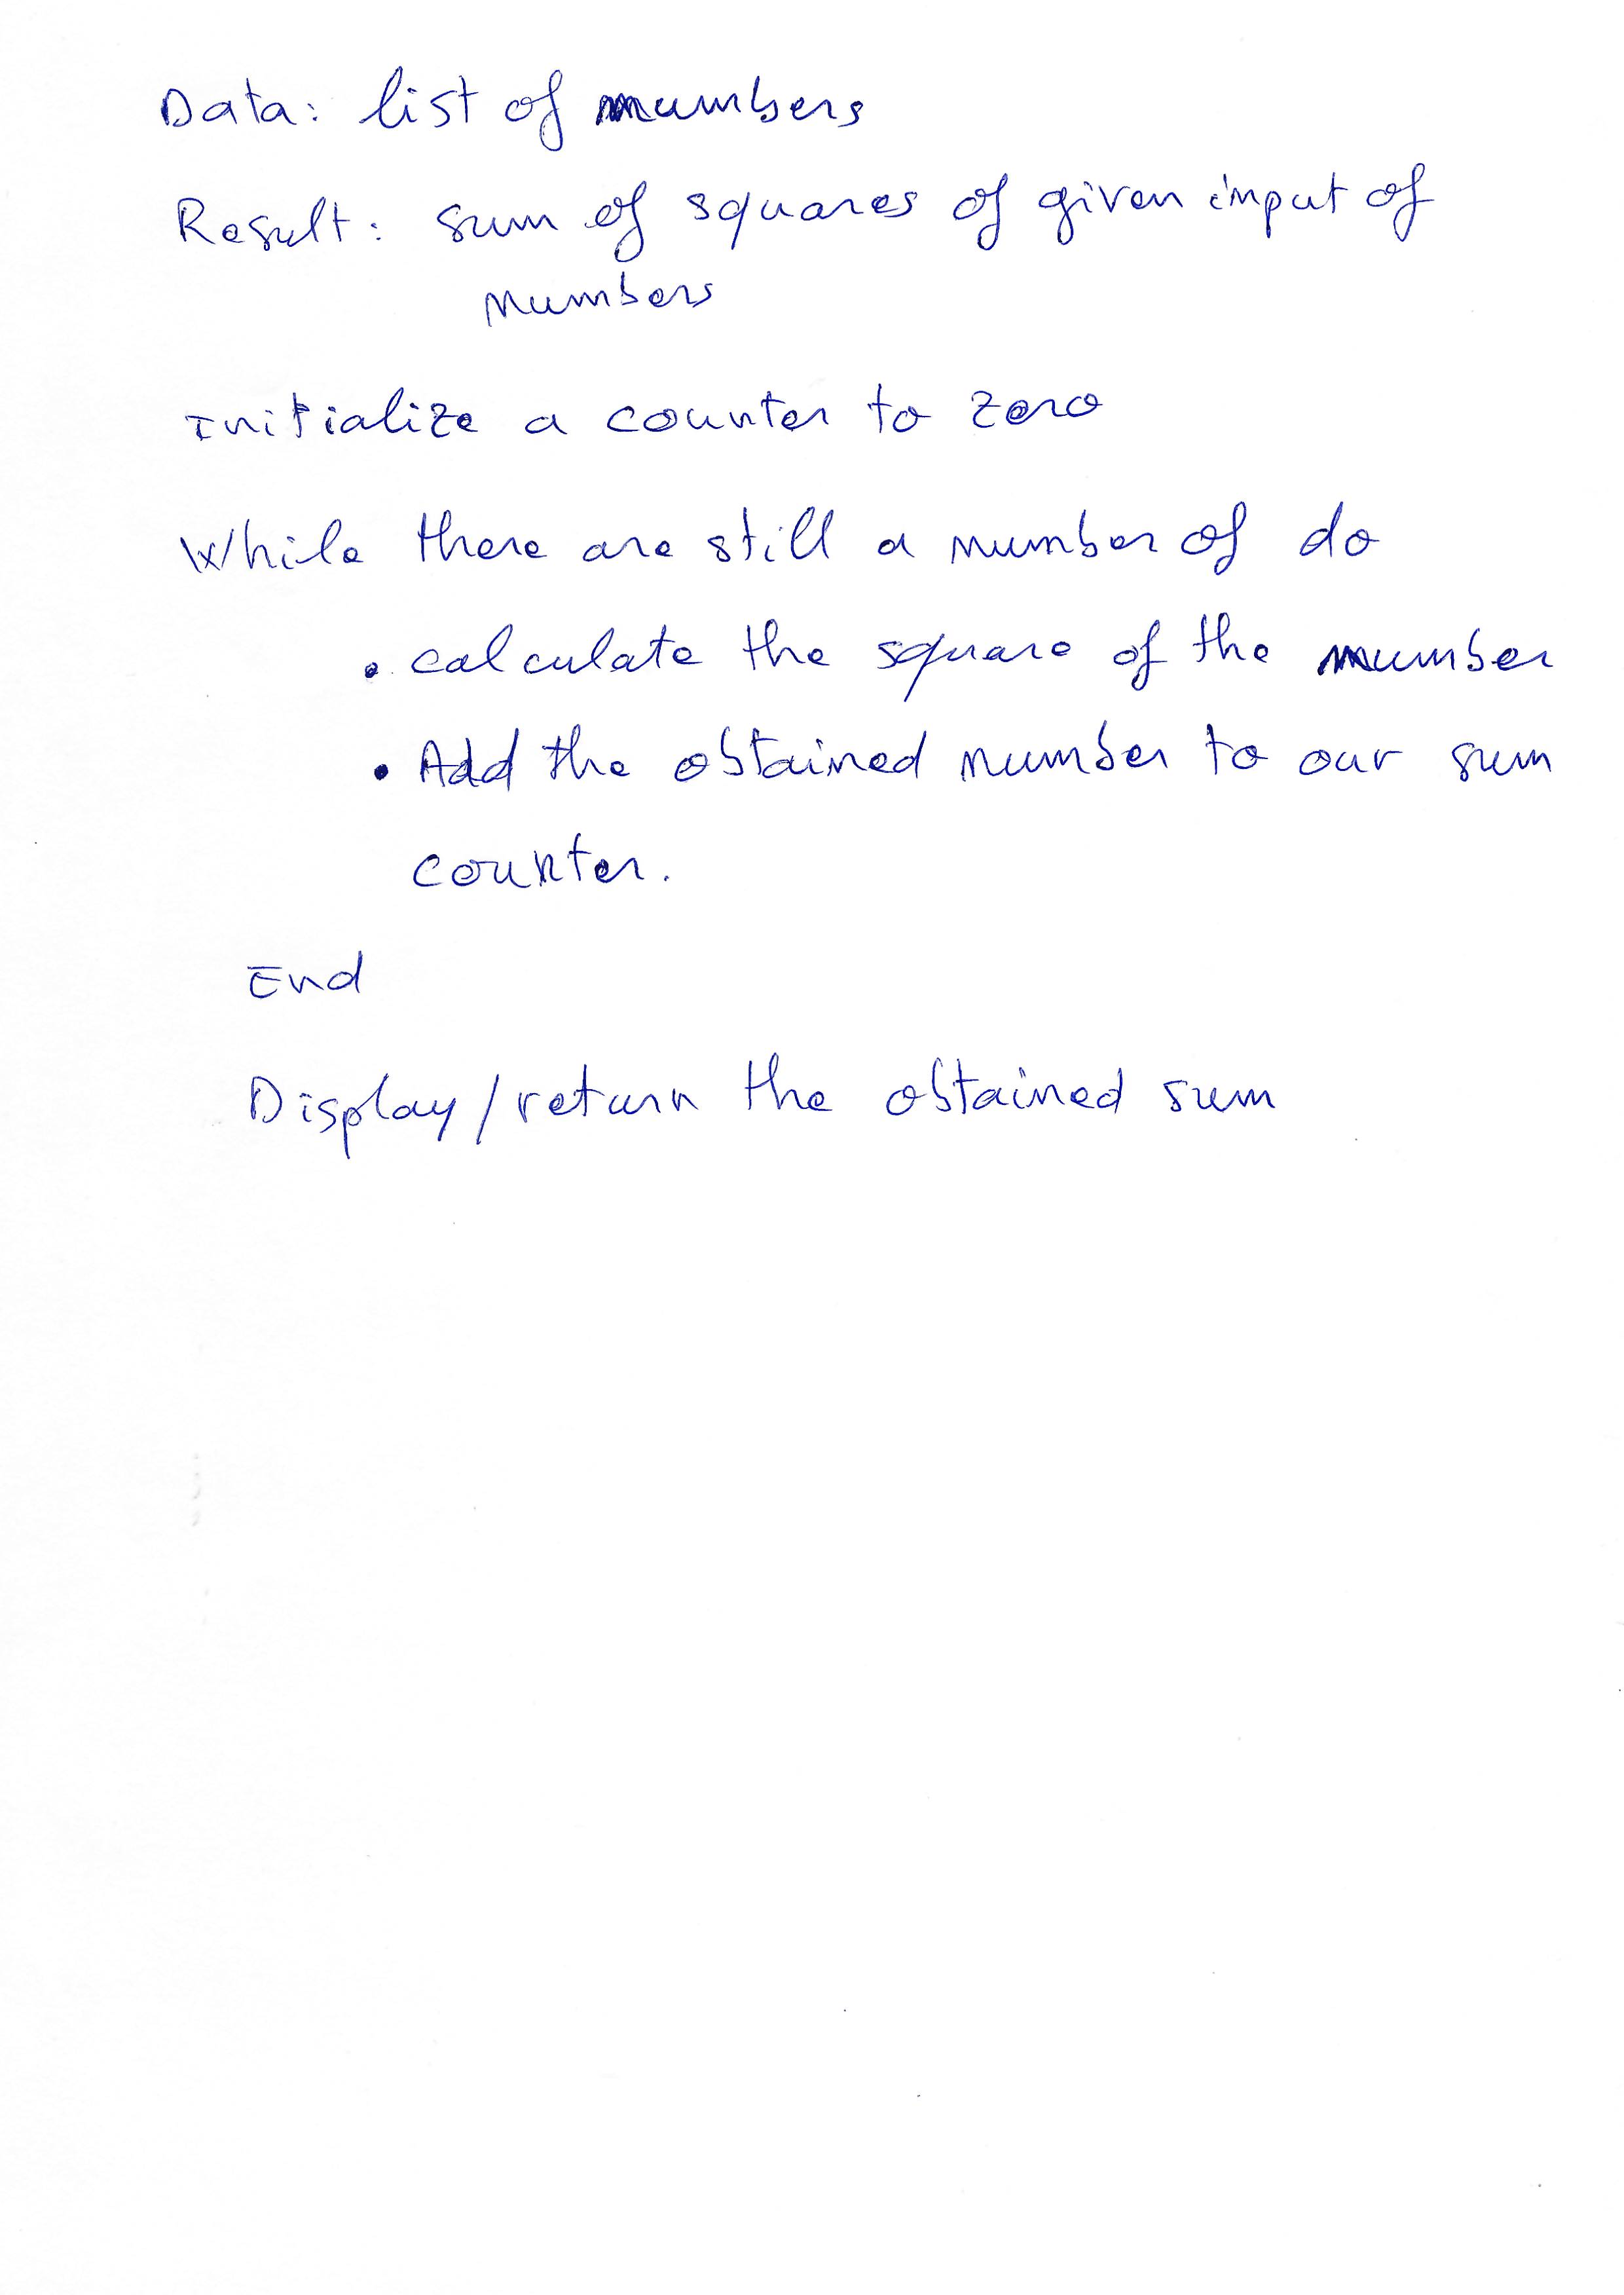 Data: list of numbers
Result: sum of squares of given input of
numbers
Initialize a counter to zero
While there are still a number of do
• calculate the square of the number
• Add the obtained number to our sum
counter.
End
Display/return the obtained sum